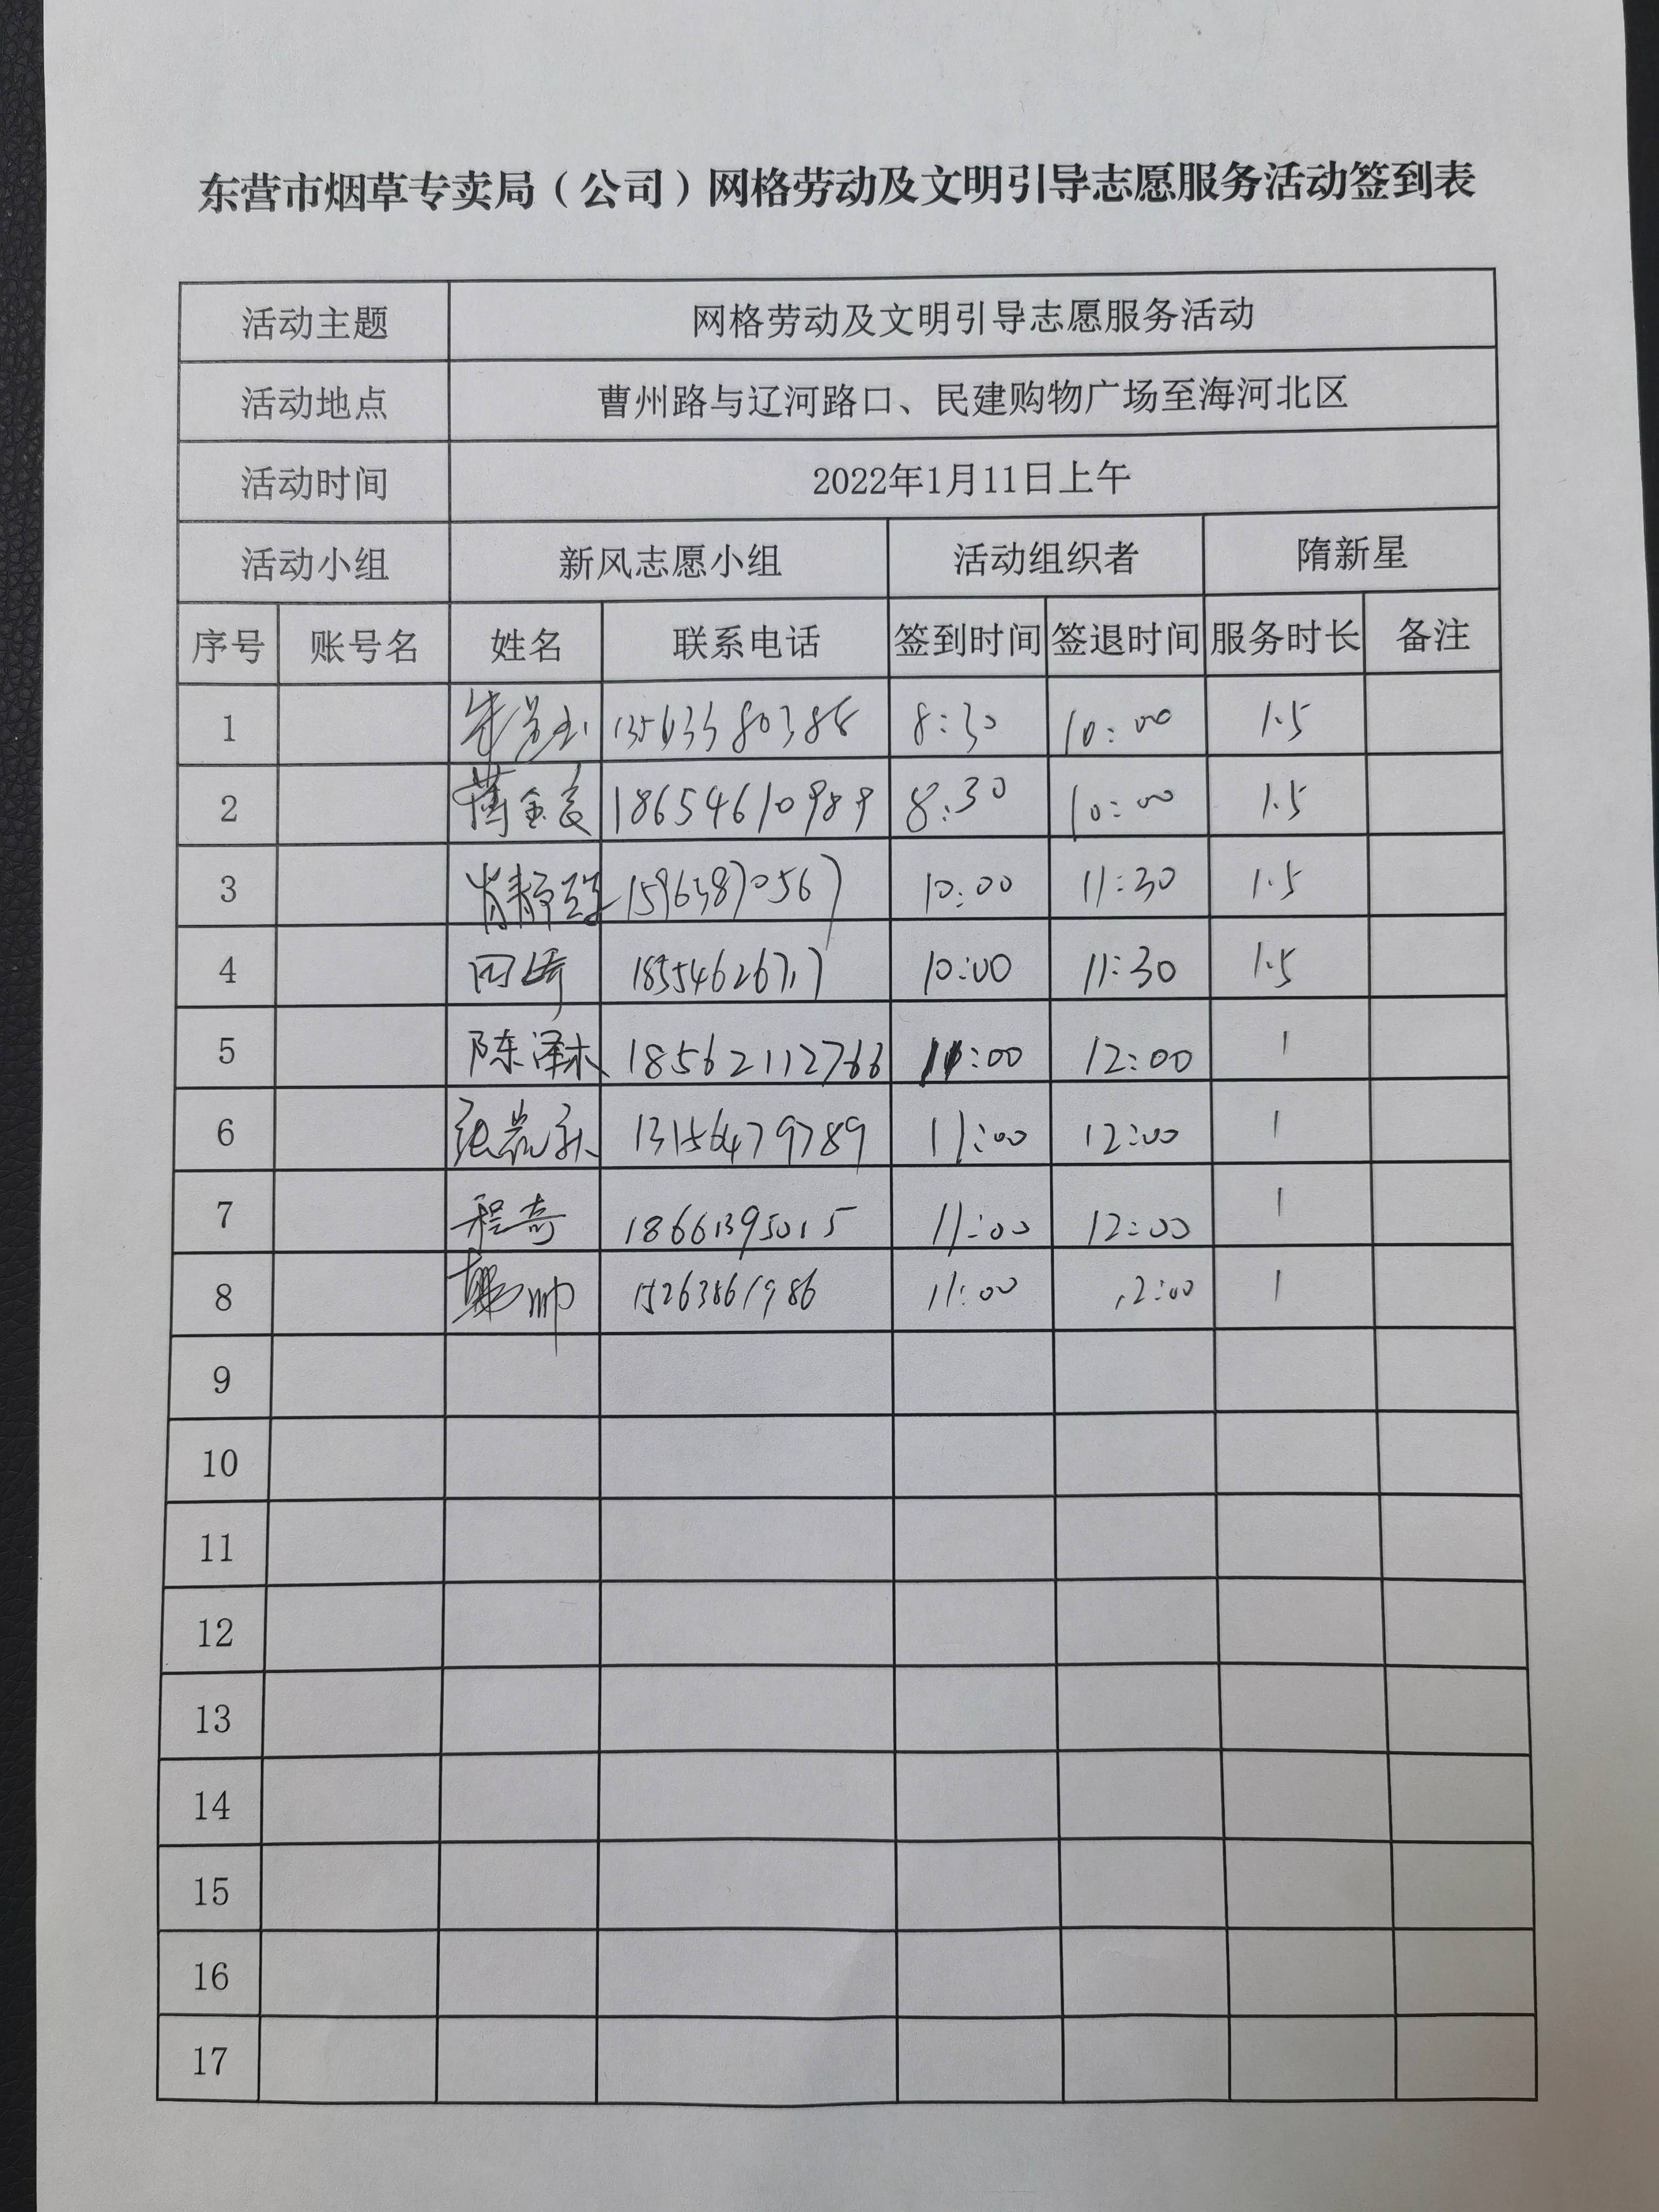 东营市烟草专卖局（公司）网格劳动及文明引导志愿服务活动签到表
活动主题 网格劳动及文明引导志愿服务活动
活动地点 曹州路与辽河路口、民建购物广场至海河北区
活动时间 2022年1月11日上午
活动小组 新风志愿小组 活动组织者 隋新星
序号 账号名 姓名 联系电话 签到时间 签退时间 服务时长 备注
1 8:30 10:00 1.5
2 18654610989 8:30 10:00 1.5
3 15963870567 10:00 11:30 1.5
4 18554626717 10:00 11:30 1.5
5 陈泽木 18562112766 11:00 12:00 1
6 13156479789 11:00 12:00 1
7 程奇 18661395015 11:00 12:00 1
8 15263861986 11:00 12:00 1
9
10
11
12
13
14
15
16
17